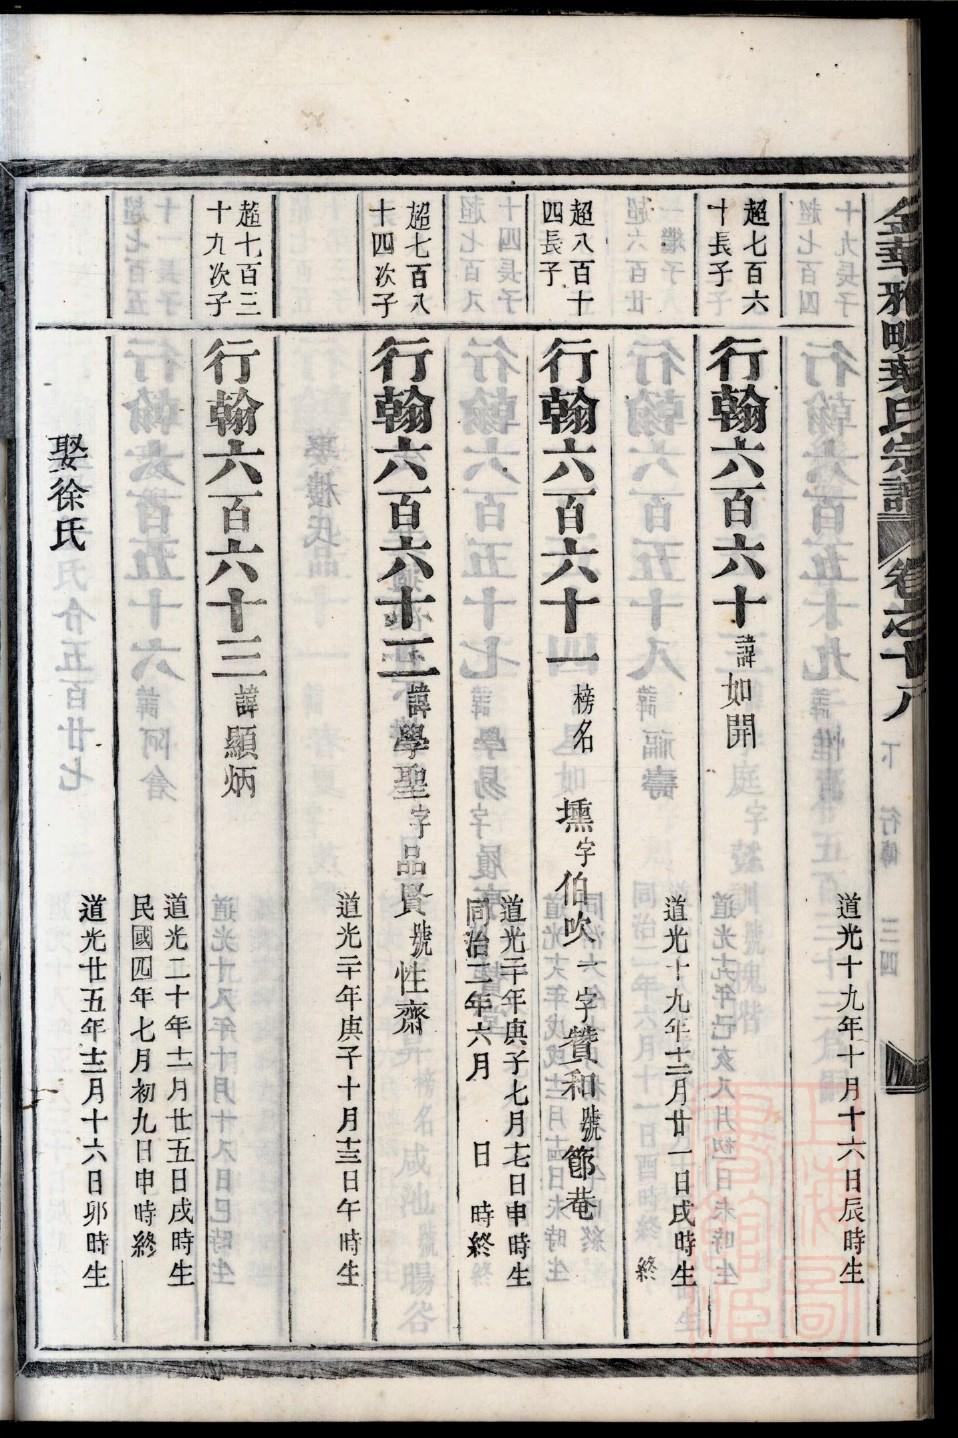 金華雅畈葉氏宗譜 卷之十八 下 行傳 三四
道光十九年十月十六日辰時生
超七百六
十長子
行翰六百六十 諱如開
道光十九年十二月廿一日戌時生
終
超八百十
四長子
行翰六百六十一 榜名壎 字伯吹 一字贊和 號節菴
道光二十年庚子七月十七日申時生
同治二年六月 日 時終
超七百八
十四次子
行翰六百六十二 諱學聖 字品賢 號性齋
道光二十年庚子十月十三日午時生
超七百三
十九次子
行翰六百六十三 諱顯炳
道光二十年十一月廿五日戌時生
民國四年七月初九日申時終
娶徐氏
道光廿五年十二月十六日卯時生